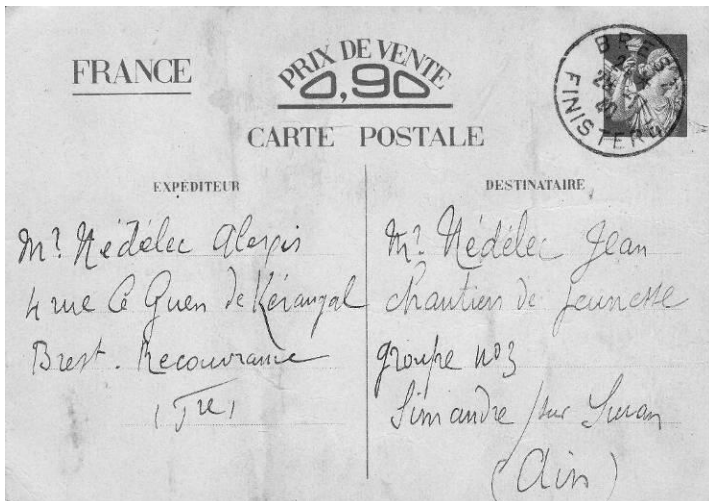 FRANCE
PRIX DE VENTE
0,90
CARTE POSTALE
BREST
FINISTERE
EXPÉDITEUR
Mr Nédélec Alexis
4 rue Le Guen de Kérangal
Brest. Recouvrance
(Fre)
DESTINATAIRE
Mr Nédélec Jean
chantiers de Jeunesse
groupe no 3
Simandre / sur Suran
(Ain)